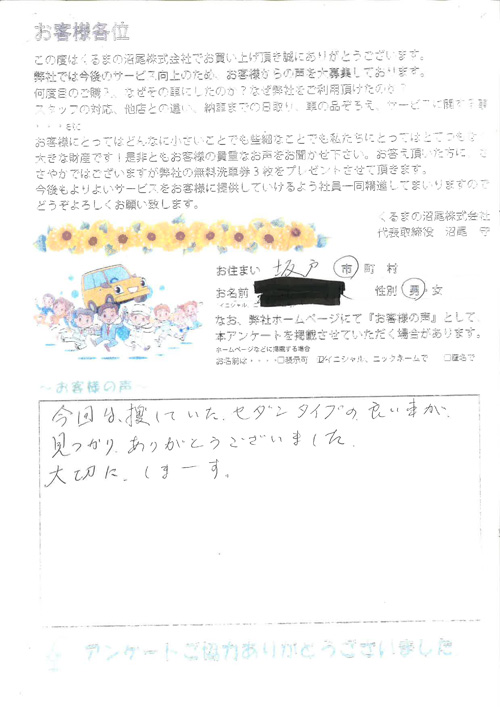 お客様各位
この度はくるまの沼尾株式会社でお買い上げ頂き誠にありがとうございます。
弊社では今後のサービス向上のため、お客様からの声を大募集しております。
何度目のご購入、なぜその車にしたのか？なぜ弊社をご利用頂けたのか？
スタッフの対応、他店との違い、納車までの日取り、車の品ぞろえ、サービスに関する
お客様にとってはどんなに小さいことでも些細なことでも私たちにとってはとても
大きな財産です！是非ともお客様の貴重なお声をお聞かせ下さい。お答え頂いた方に
ささやかではございますが弊社の無料洗車券３枚をプレゼントさせて頂きます。
今後もよりよいサービスをお客様に提供していけるよう社員一同精進してまいりますので
どうぞよろしくお願い致します。
くるまの沼尾株式会社
代表取締役 沼尾 守
お住まい 坂戸 市 町 村
お名前 性別 男・女
イニシャル、
なお、弊社ホームページにて『お客様の声』として、
本アンケートを掲載させていただく場合があります。
ホームページなどに掲載する場合
お名前は・・・・□掲示可 ☑イニシャル、ニックネームで □匿名で
～お客様の声～
今回は、捜していた、セダンタイプの、良い車が、
見つかり、ありがとうございました。
大切に、しまーす。
アンケートご協力ありがとうございました